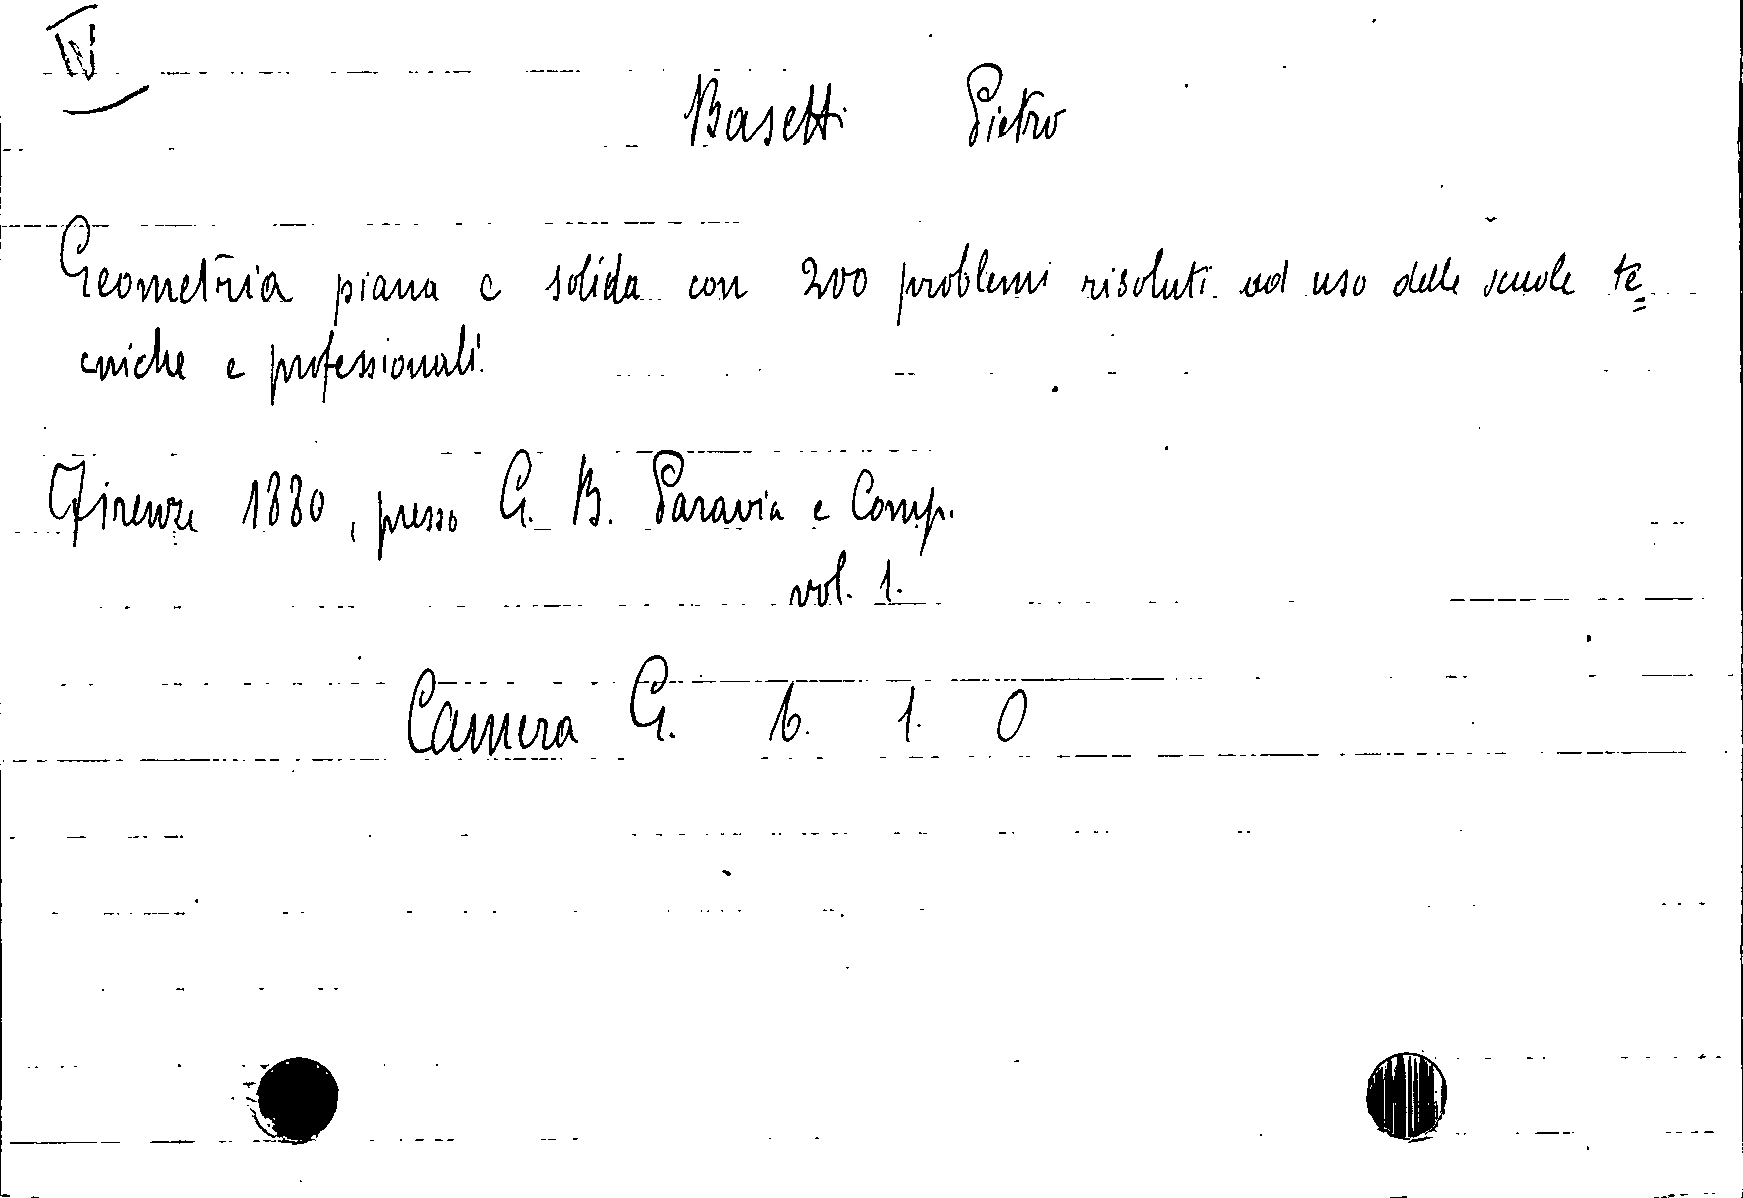 IV
Basetti Pietro
Geometria piana e solida con 200 problemi risoluti ad uso delle scuole te=
cniche e professionali.
Firenze 1880, presso G. B. Paravia e Comp.
vol. 1.
Camera G. 6. 1. 0